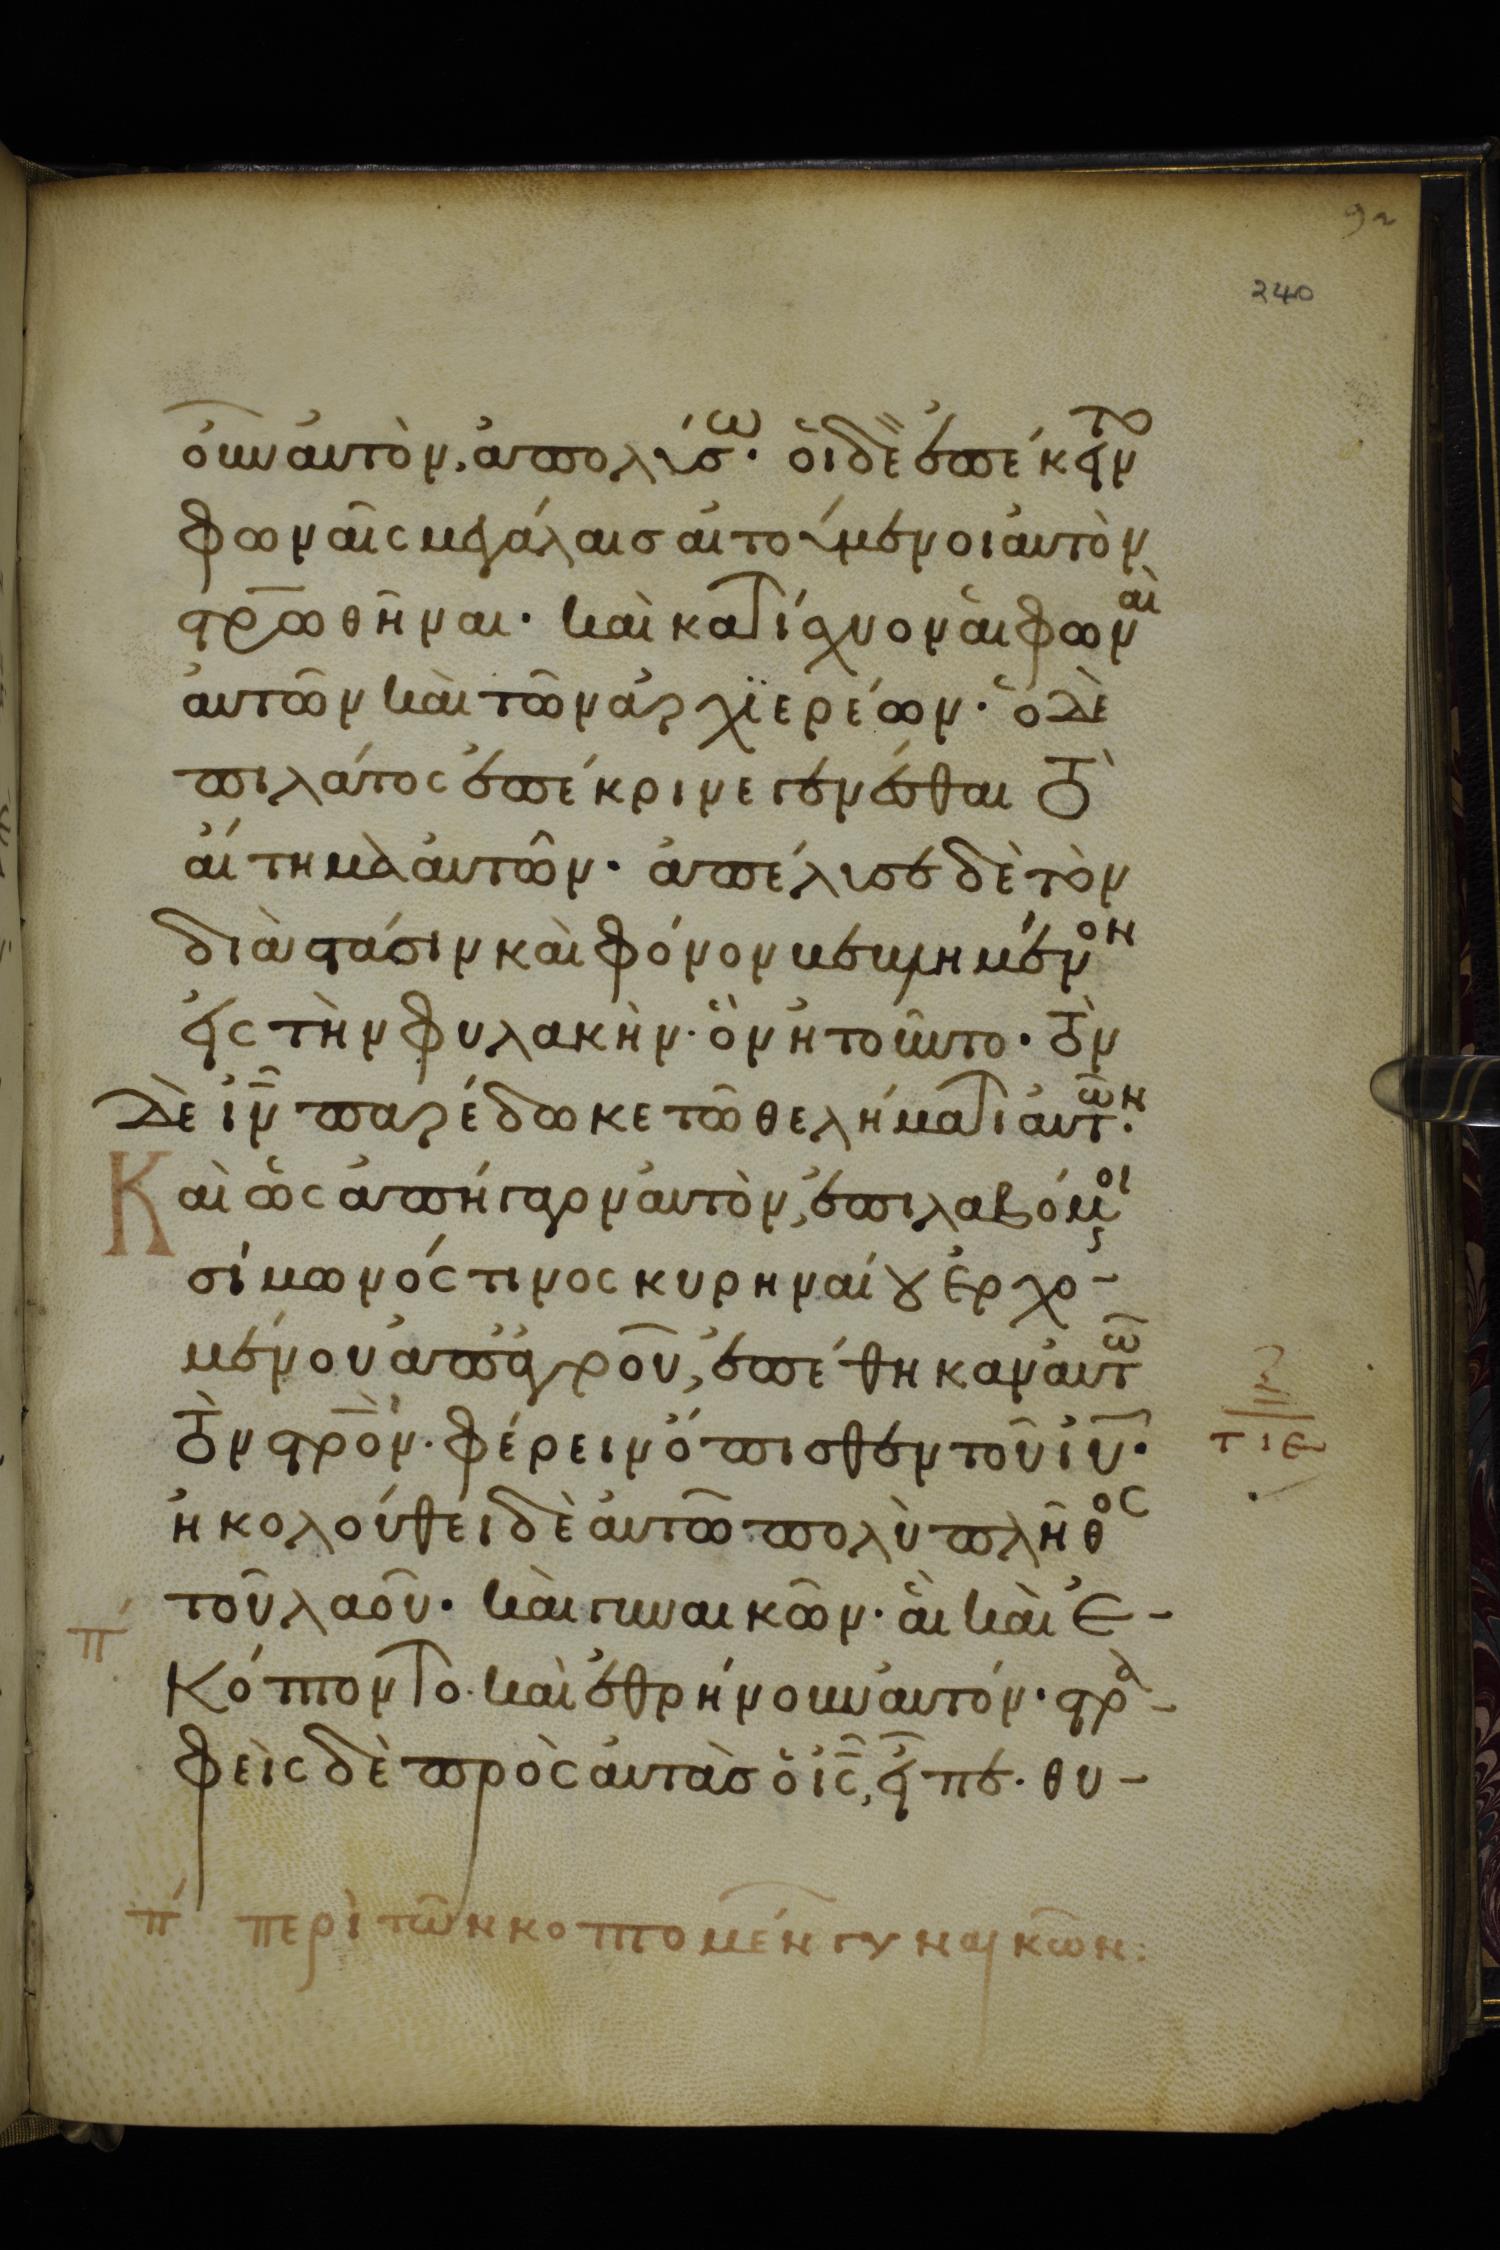 92
240
οὖν αὐτὸν, ἀπολύσω· οἱ δὲ ἐπέκειντο
φωναῖς μεγάλαις αἰτούμενοι αὐτὸν
στ̅ρωθῆναι· καὶ κατίσχυον αἱ φωναὶ
αὐτῶν καὶ τῶν ἀρχϊερέων· ὁ δὲ
πιλάτος ἐπέκρινε γενέσθαι τὸ
αἴτημα αὐτῶν· ἀπέλυσε δὲ τὸν
διὰ στάσιν καὶ φόνον βεβλημένον
εἰς τὴν φυλακὴν· ὃν ἠτοῦντο· τὸν
δὲ ι̅ν̅ παρέδωκε τῶ θελήματι αὐτῶν·
Καὶ ὡς ἀπήγαγον αὐτὸν, ἐπιλαβόμενοι
σίμωνός τινος κυρηναίου ἐρχο-
μένου ἀπὸ ἀγροῦ, ἐπέθηκαν αὐτῶ
τὸν στ̅ρ̅ὸν· φέρειν ὄπισθεν τοῦ ι̅υ̅·
τιε
ἠκολούθει δὲ αὐτῶ πολὺ πλῆθος
π τοῦ λαοῦ· καὶ γυναικῶν· αἳ καὶ ἐ-
κόπτοντο· καὶ ἐθρήνουν αὐτόν· στρα-
φεὶς δὲ πρὸς αὐτὰς ὁ ι̅ς̅, εἶπε· θυ-
π περὶ τῶν κοπτομέν γυναικῶν: